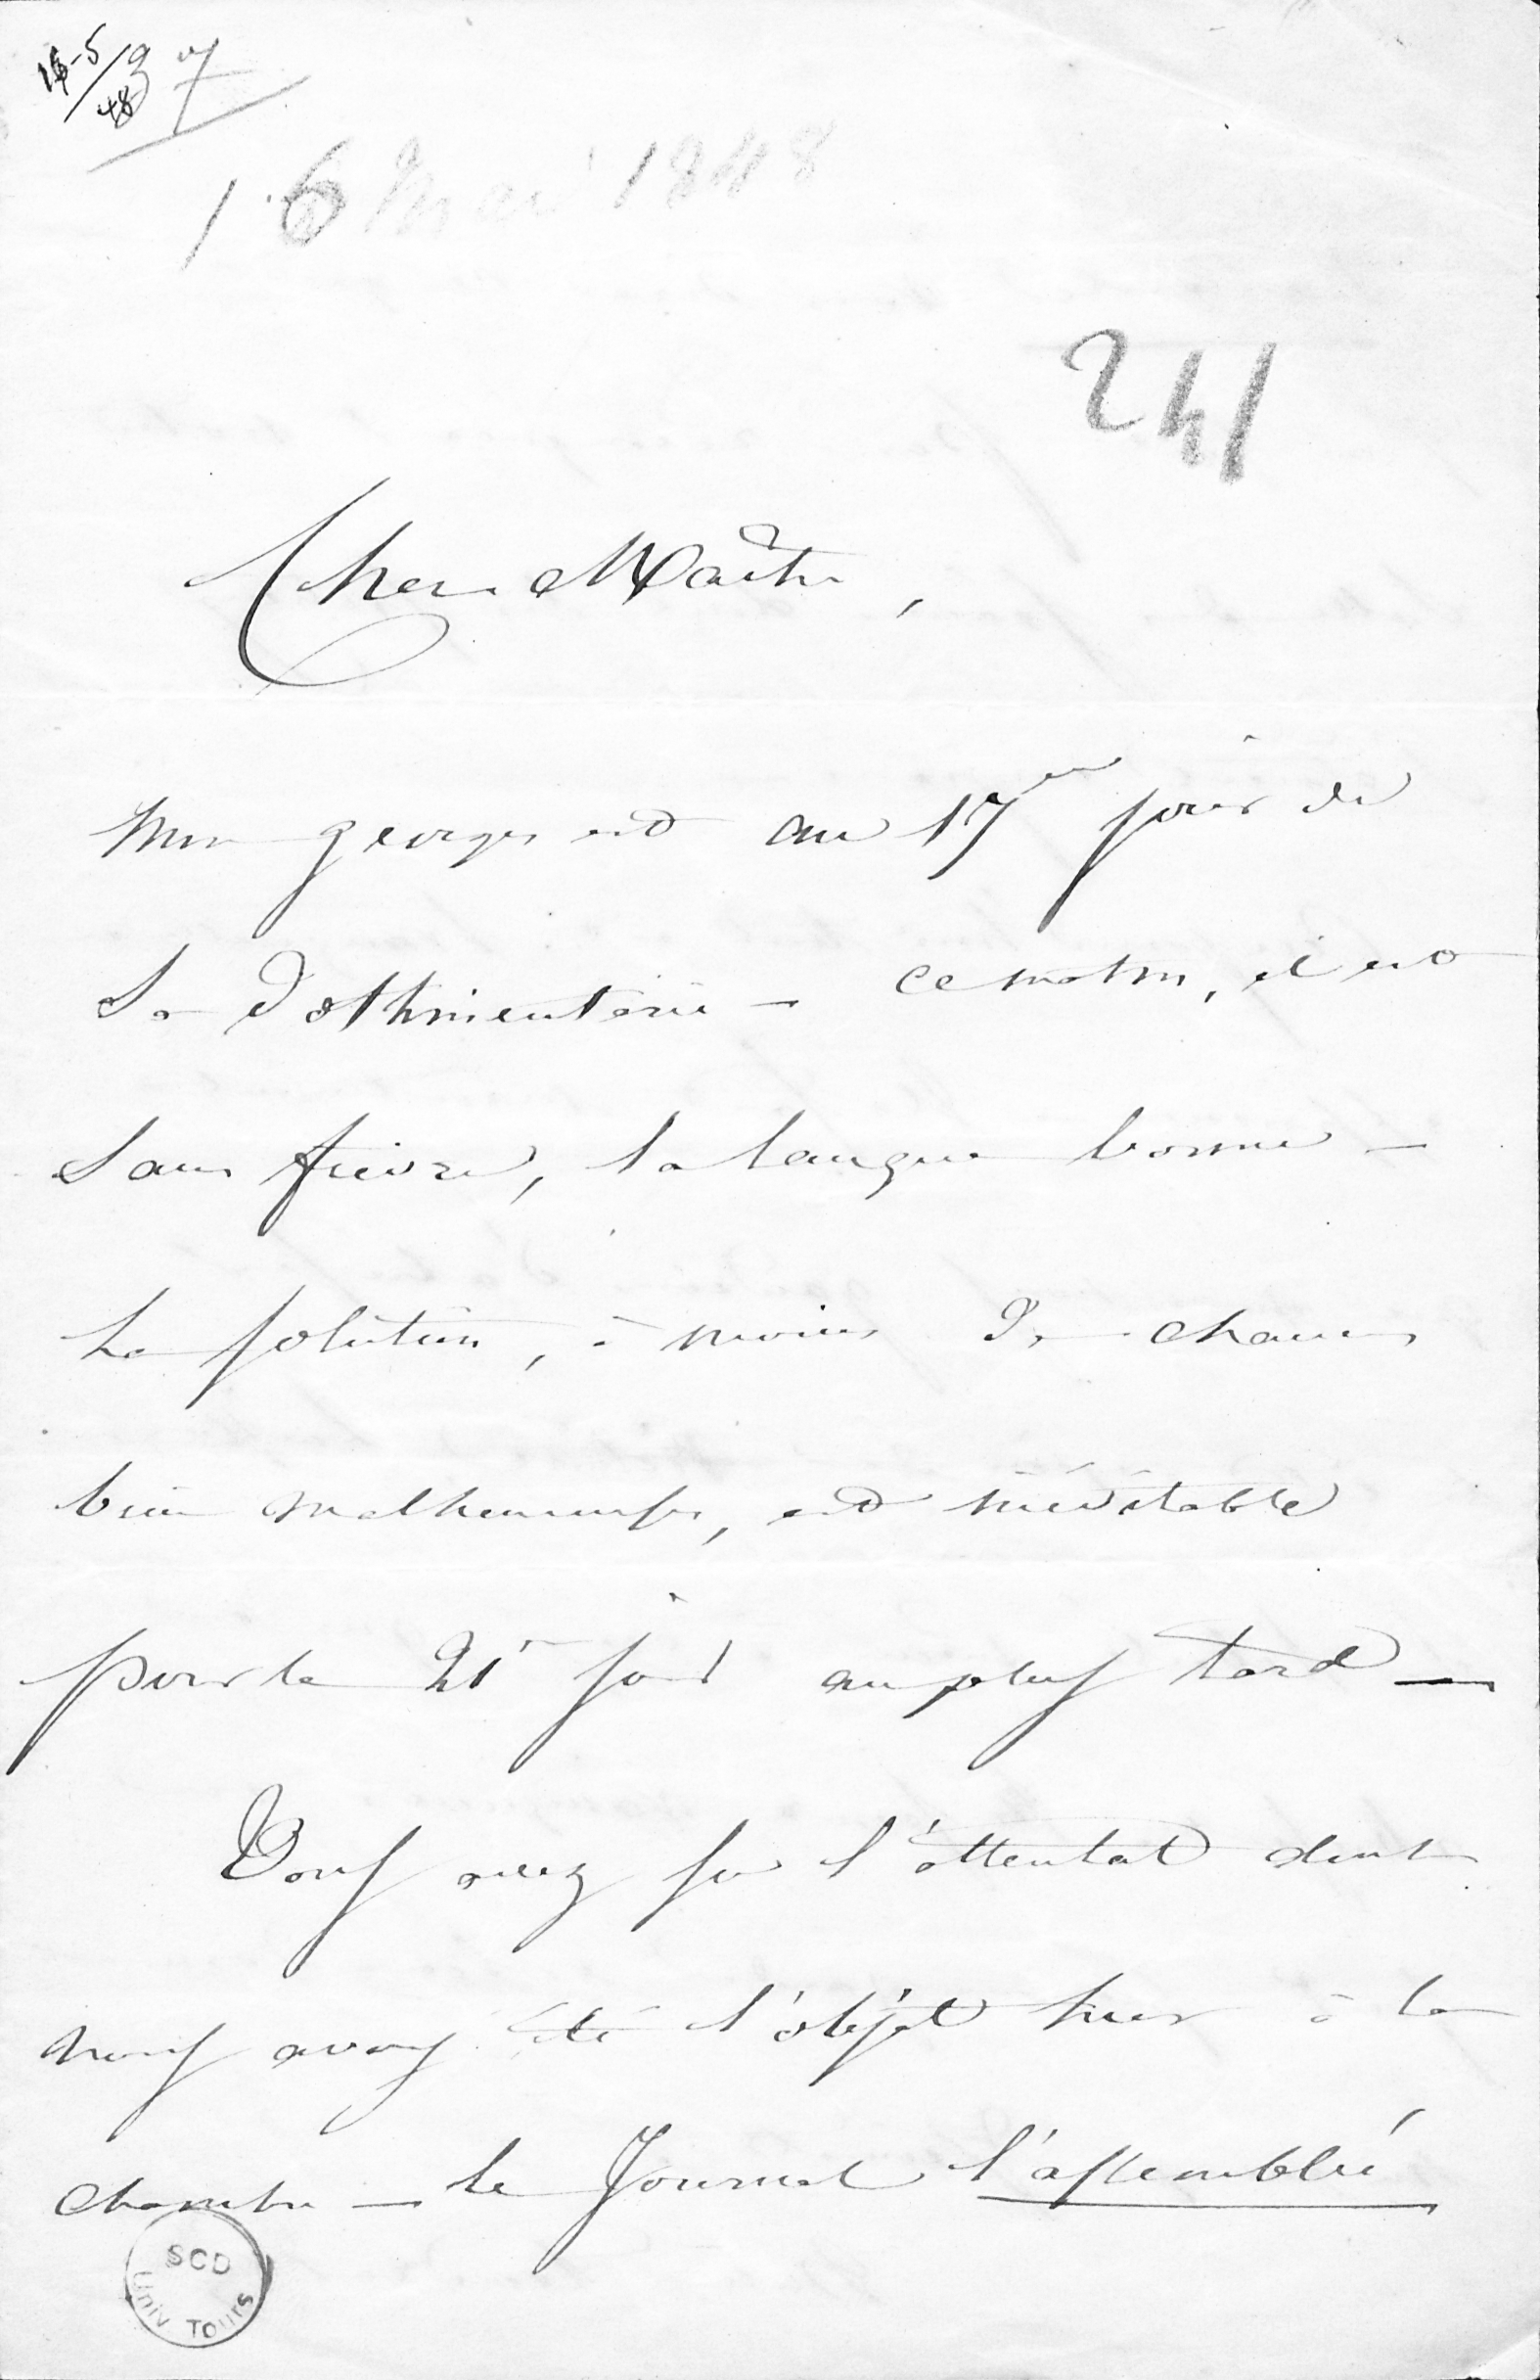 16-5/48
37
16 Mai 1848
241
Cher Maître,
Mon georges est au 17me jour de
Sa Dothinenterie — ce matin, il est
Sans fievre, la langue bonne —
La solution, à moins De chances
bien malheureuses, est inévitable
pour le 21e jour au plus tard —
Vous avez su l'attentat dont
nous avons été l'objet hier à la
chambre — le Journal l'assemblée
SCD
Univ Tours